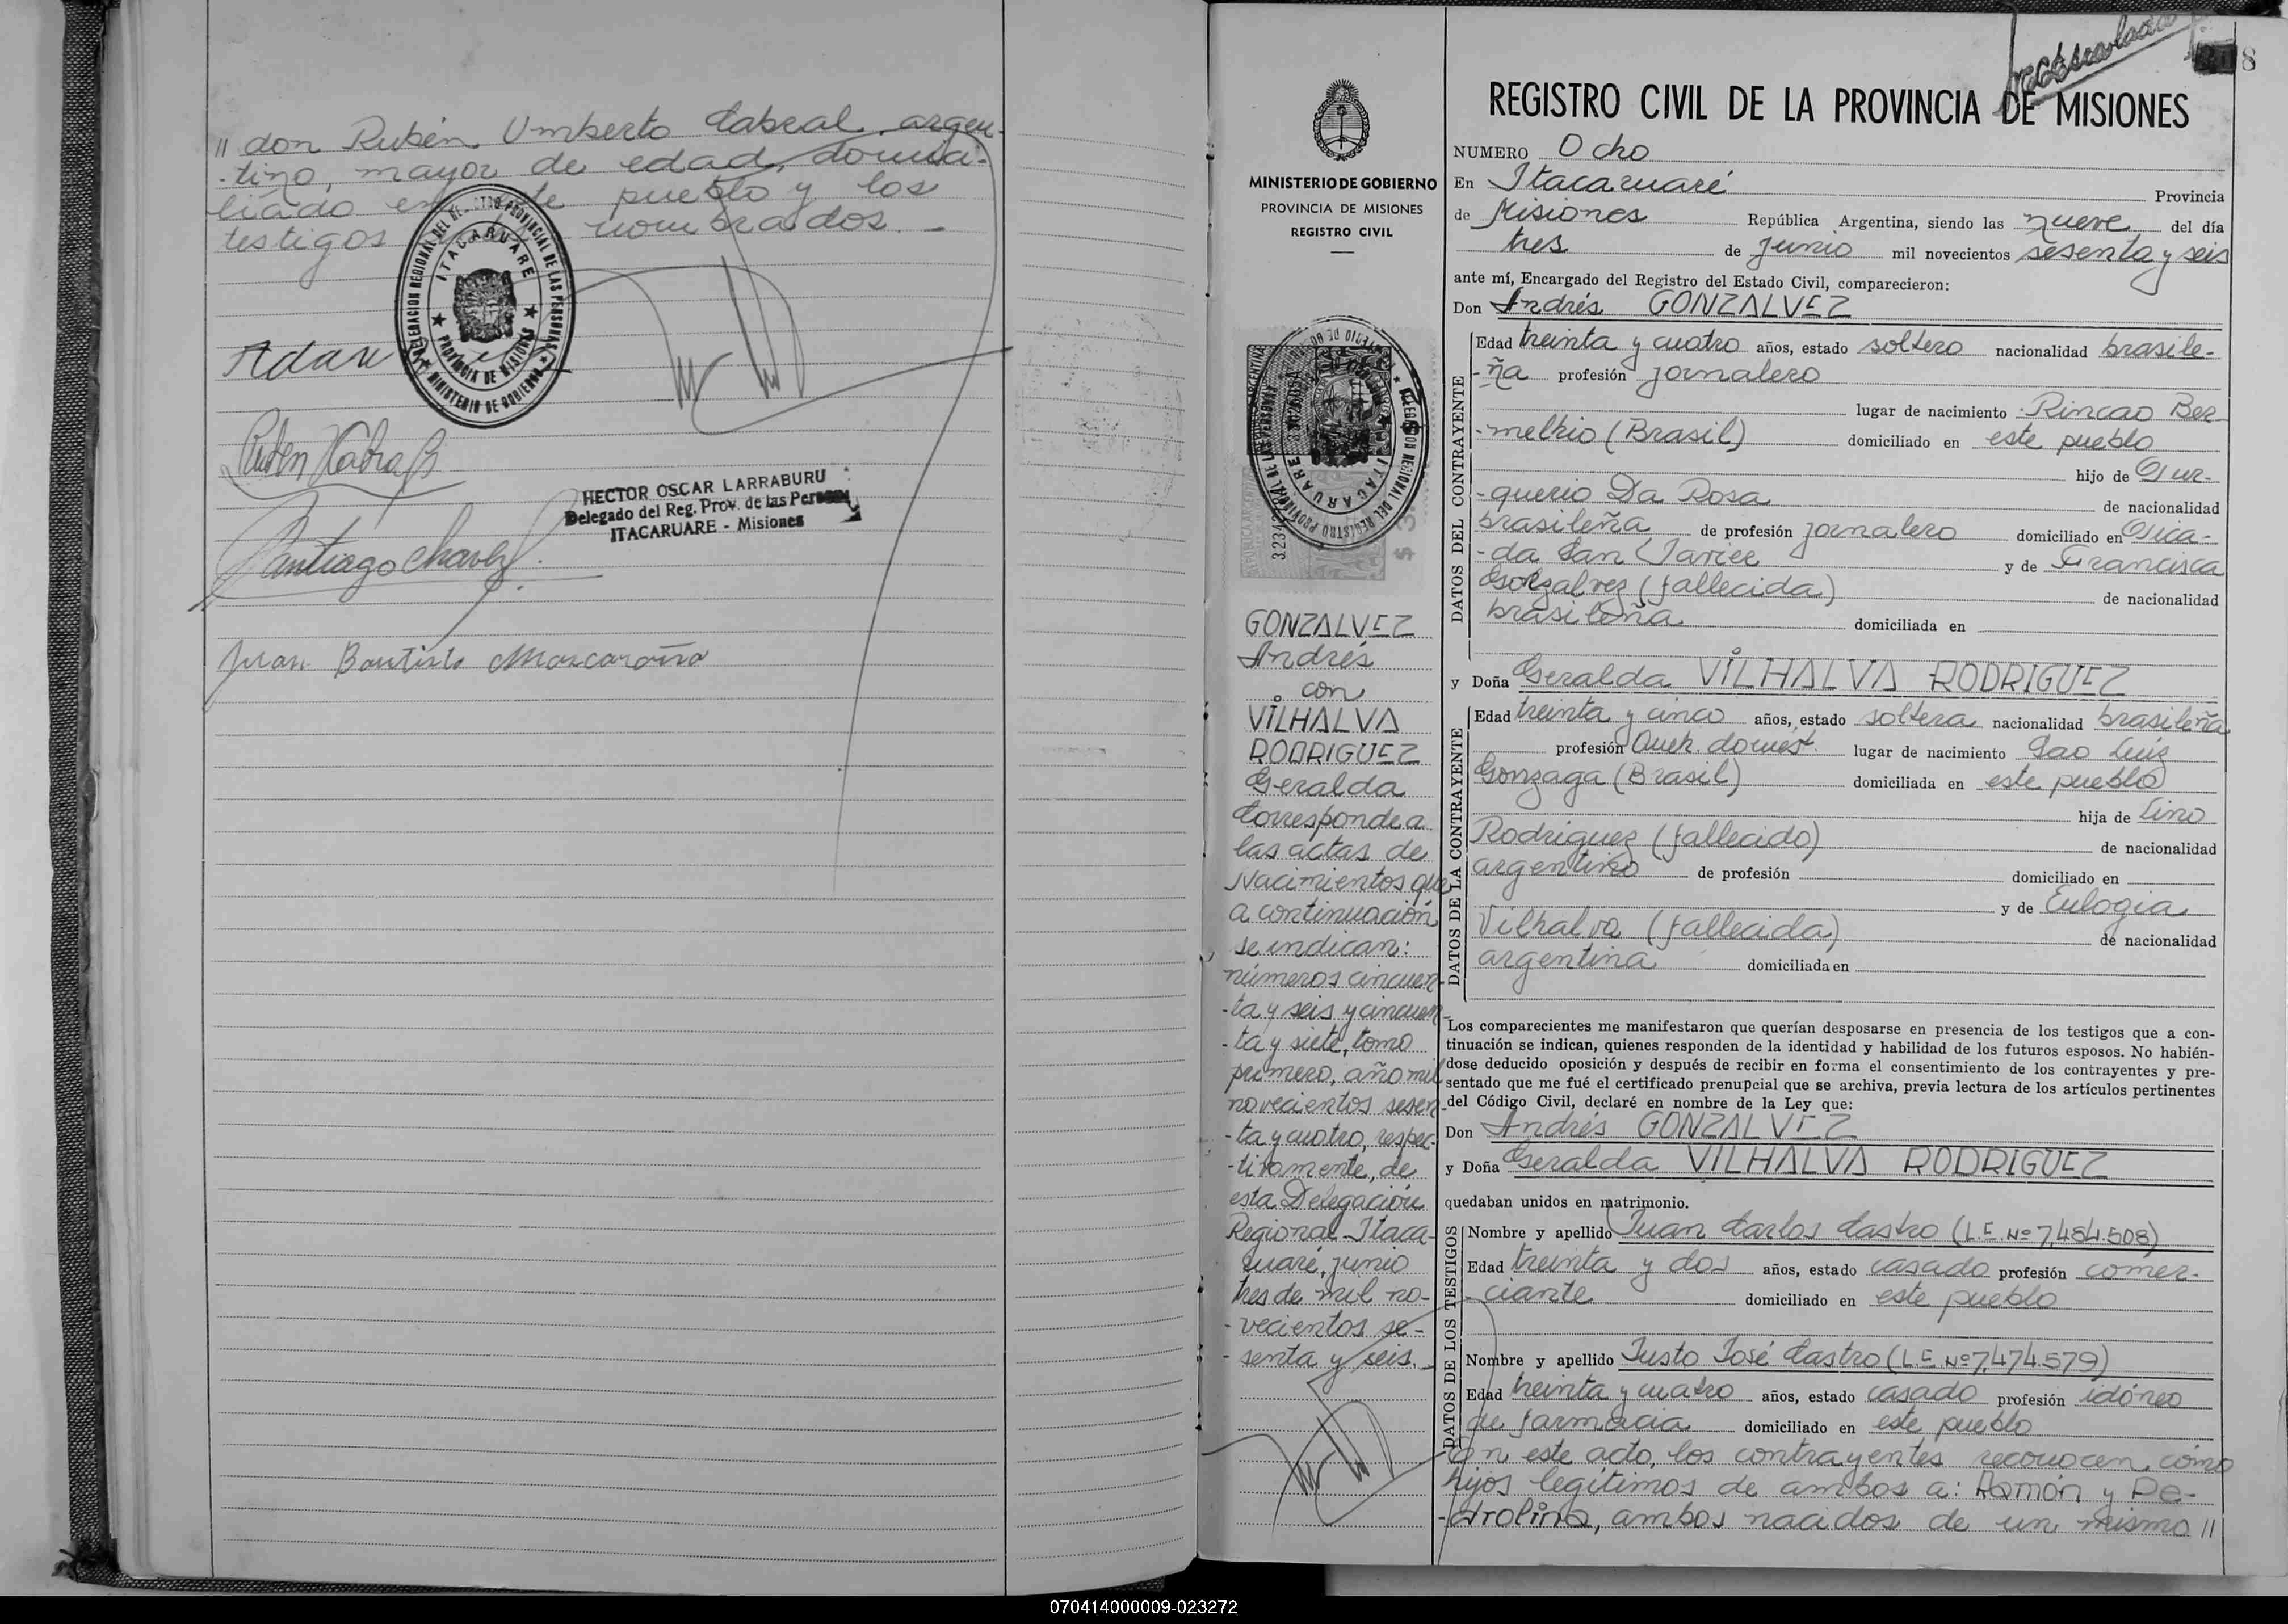 " don Rubén Umberto Cabral, argen-
-tino, mayor de edad, domici-
liado en este pueblo y los
testigos nombrados. -
DELEGACION REGIONAL DEL REGISTRO PROVINCIAL DE LAS PERSONAS
ITACARUARE
PROVINCIA DE MISIONES
MINISTERIO DE GOBIERNO
Adan
Ruben Cabral
HECTOR OSCAR LARRABURU
Delegado del Reg. Prov. de las Personas
ITACARUARE - Misiones
Santiago Chavez
Juan Bautista
8
MINISTERIO DE GOBIERNO
PROVINCIA DE MISIONES
REGISTRO CIVIL
ITACARUARE
GONZALVEZ
Andrés
con
VILHALVA
RODRIGUEZ
Geralda
Corresponde a
las actas de
Nacimientos que
a continuación
se indican:
números cincuen-
-ta y seis y cincuen-
-ta y siete, tomo
primero, año mil
novecientos sesen-
-ta y cuatro, respec-
-tivamente, de
esta Delegación
Regional-Itaca-
ruaré, junio
tres de mil no-
-vecientos se-
-senta y seis.-
REGISTRO CIVIL DE LA PROVINCIA DE MISIONES
NUMERO Ocho
En Itacaruaré Provincia
de Misiones República Argentina, siendo las nueve del día
tres de junio mil novecientos sesenta y seis
ante mí, Encargado del Registro del Estado Civil, comparecieron:
Don Andrés GONZALVEZ
DATOS DEL CONTRAYENTE
Edad treinta y cuatro años, estado soltero nacionalidad brasile-
-ña profesión jornalero
lugar de nacimiento Rincao Ber-
-melhio (Brasil) domiciliado en este pueblo
hijo de Tur-
-querio Da Rosa de nacionalidad
brasileña de profesión jornalero domiciliado en Pica-
-da San Javier y de Francisca
Gonzalvez (fallecida) de nacionalidad
brasileña domiciliada en
y Doña Geralda VILHALVA RODRIGUEZ
DATOS DE LA CONTRAYENTE
Edad treinta y cinco años, estado soltera nacionalidad brasileña
profesión Queh. domést. lugar de nacimiento Sao Luiz
Gonzaga (Brasil) domiciliada en este pueblo
hija de Lino
Rodriguez (fallecido) de nacionalidad
argentino de profesión domiciliado en
y de Eulogia
Vilhalva (fallecida) de nacionalidad
argentina domiciliada en
Los comparecientes me manifestaron que querían desposarse en presencia de los testigos que a con-
tinuación se indican, quienes responden de la identidad y habilidad de los futuros esposos. No habién-
dose deducido oposición y después de recibir en forma el consentimiento de los contrayentes y pre-
sentado que me fué el certificado prenupcial que se archiva, previa lectura de los artículos pertinentes
del Código Civil, declaré en nombre de la Ley que:
Don Andrés GONZALVEZ
y Doña Geralda VILHALVA RODRIGUEZ
quedaban unidos en matrimonio.
DATOS DE LOS TESTIGOS
Nombre y apellido Juan Carlos Castro (L.E. Nº 7.484.508)
Edad treinta y dos años, estado casado profesión comer-
-ciante domiciliado en este pueblo
Nombre y apellido Justo José Castro (L.E. Nº 7.474.579)
Edad treinta y cuatro años, estado casado profesión idóneo
de farmacia domiciliado en este pueblo
En este acto, los contrayentes reconocen como
hijos legítimos de ambos a: Ramón y Pe-
-drolina, ambos nacidos de un mismo "
070414000009-023272